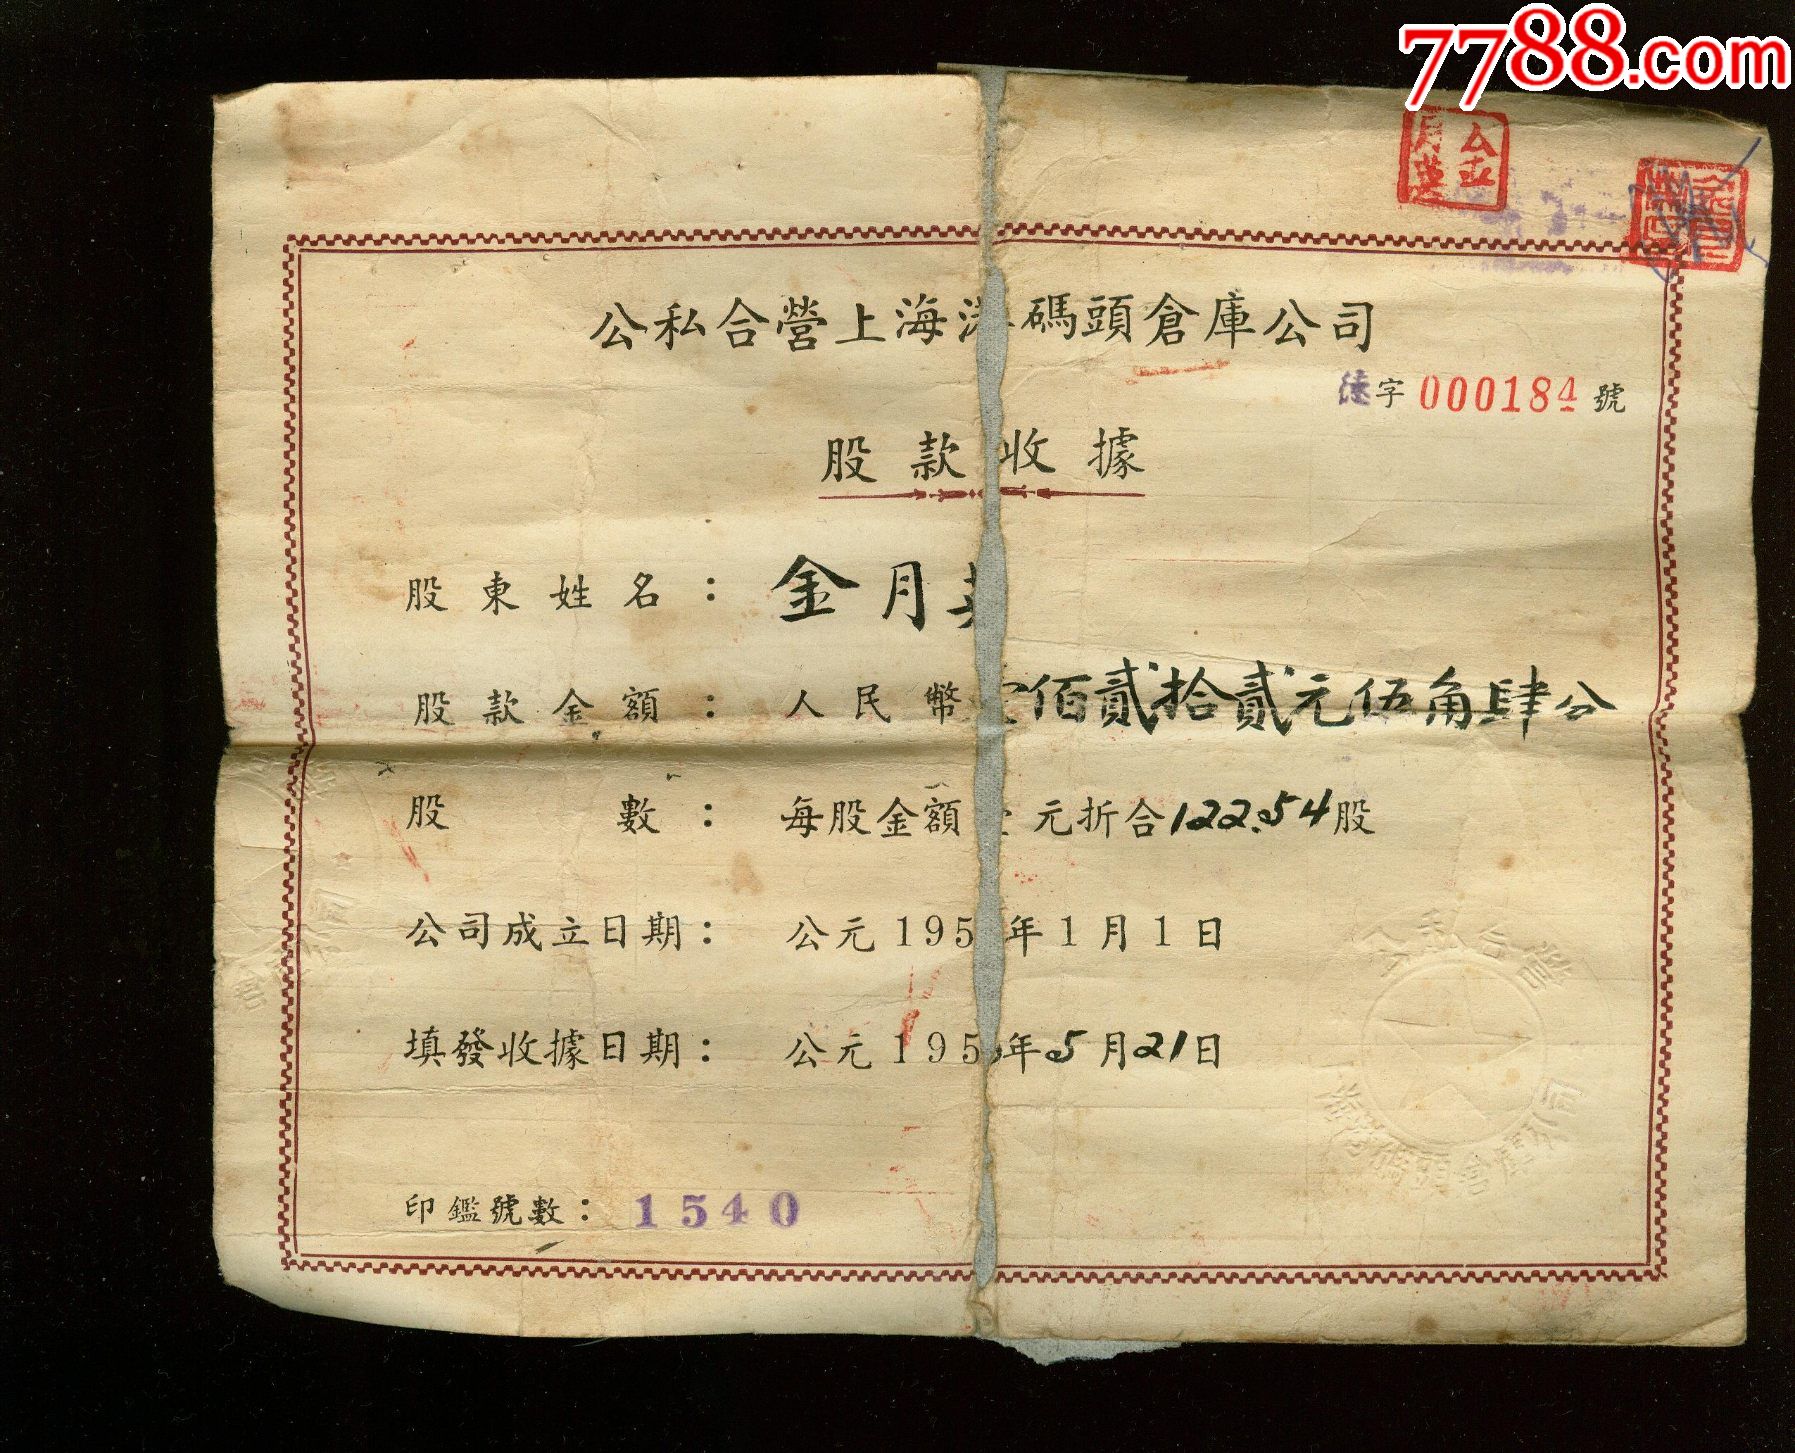 7788.com
金月英
公私合營上海港碼頭倉庫公司
字 000184 號
股款收據
股東姓名： 金月英
股款金額： 人民幣壹佰貳拾貳元伍角肆分
股數： 每股金額壹元折合122.54股
公司成立日期： 公元195 年1月1日
填發收據日期： 公元195 年5月21日
印鑑號數： 1540
公私合營
上海港碼頭倉庫公司